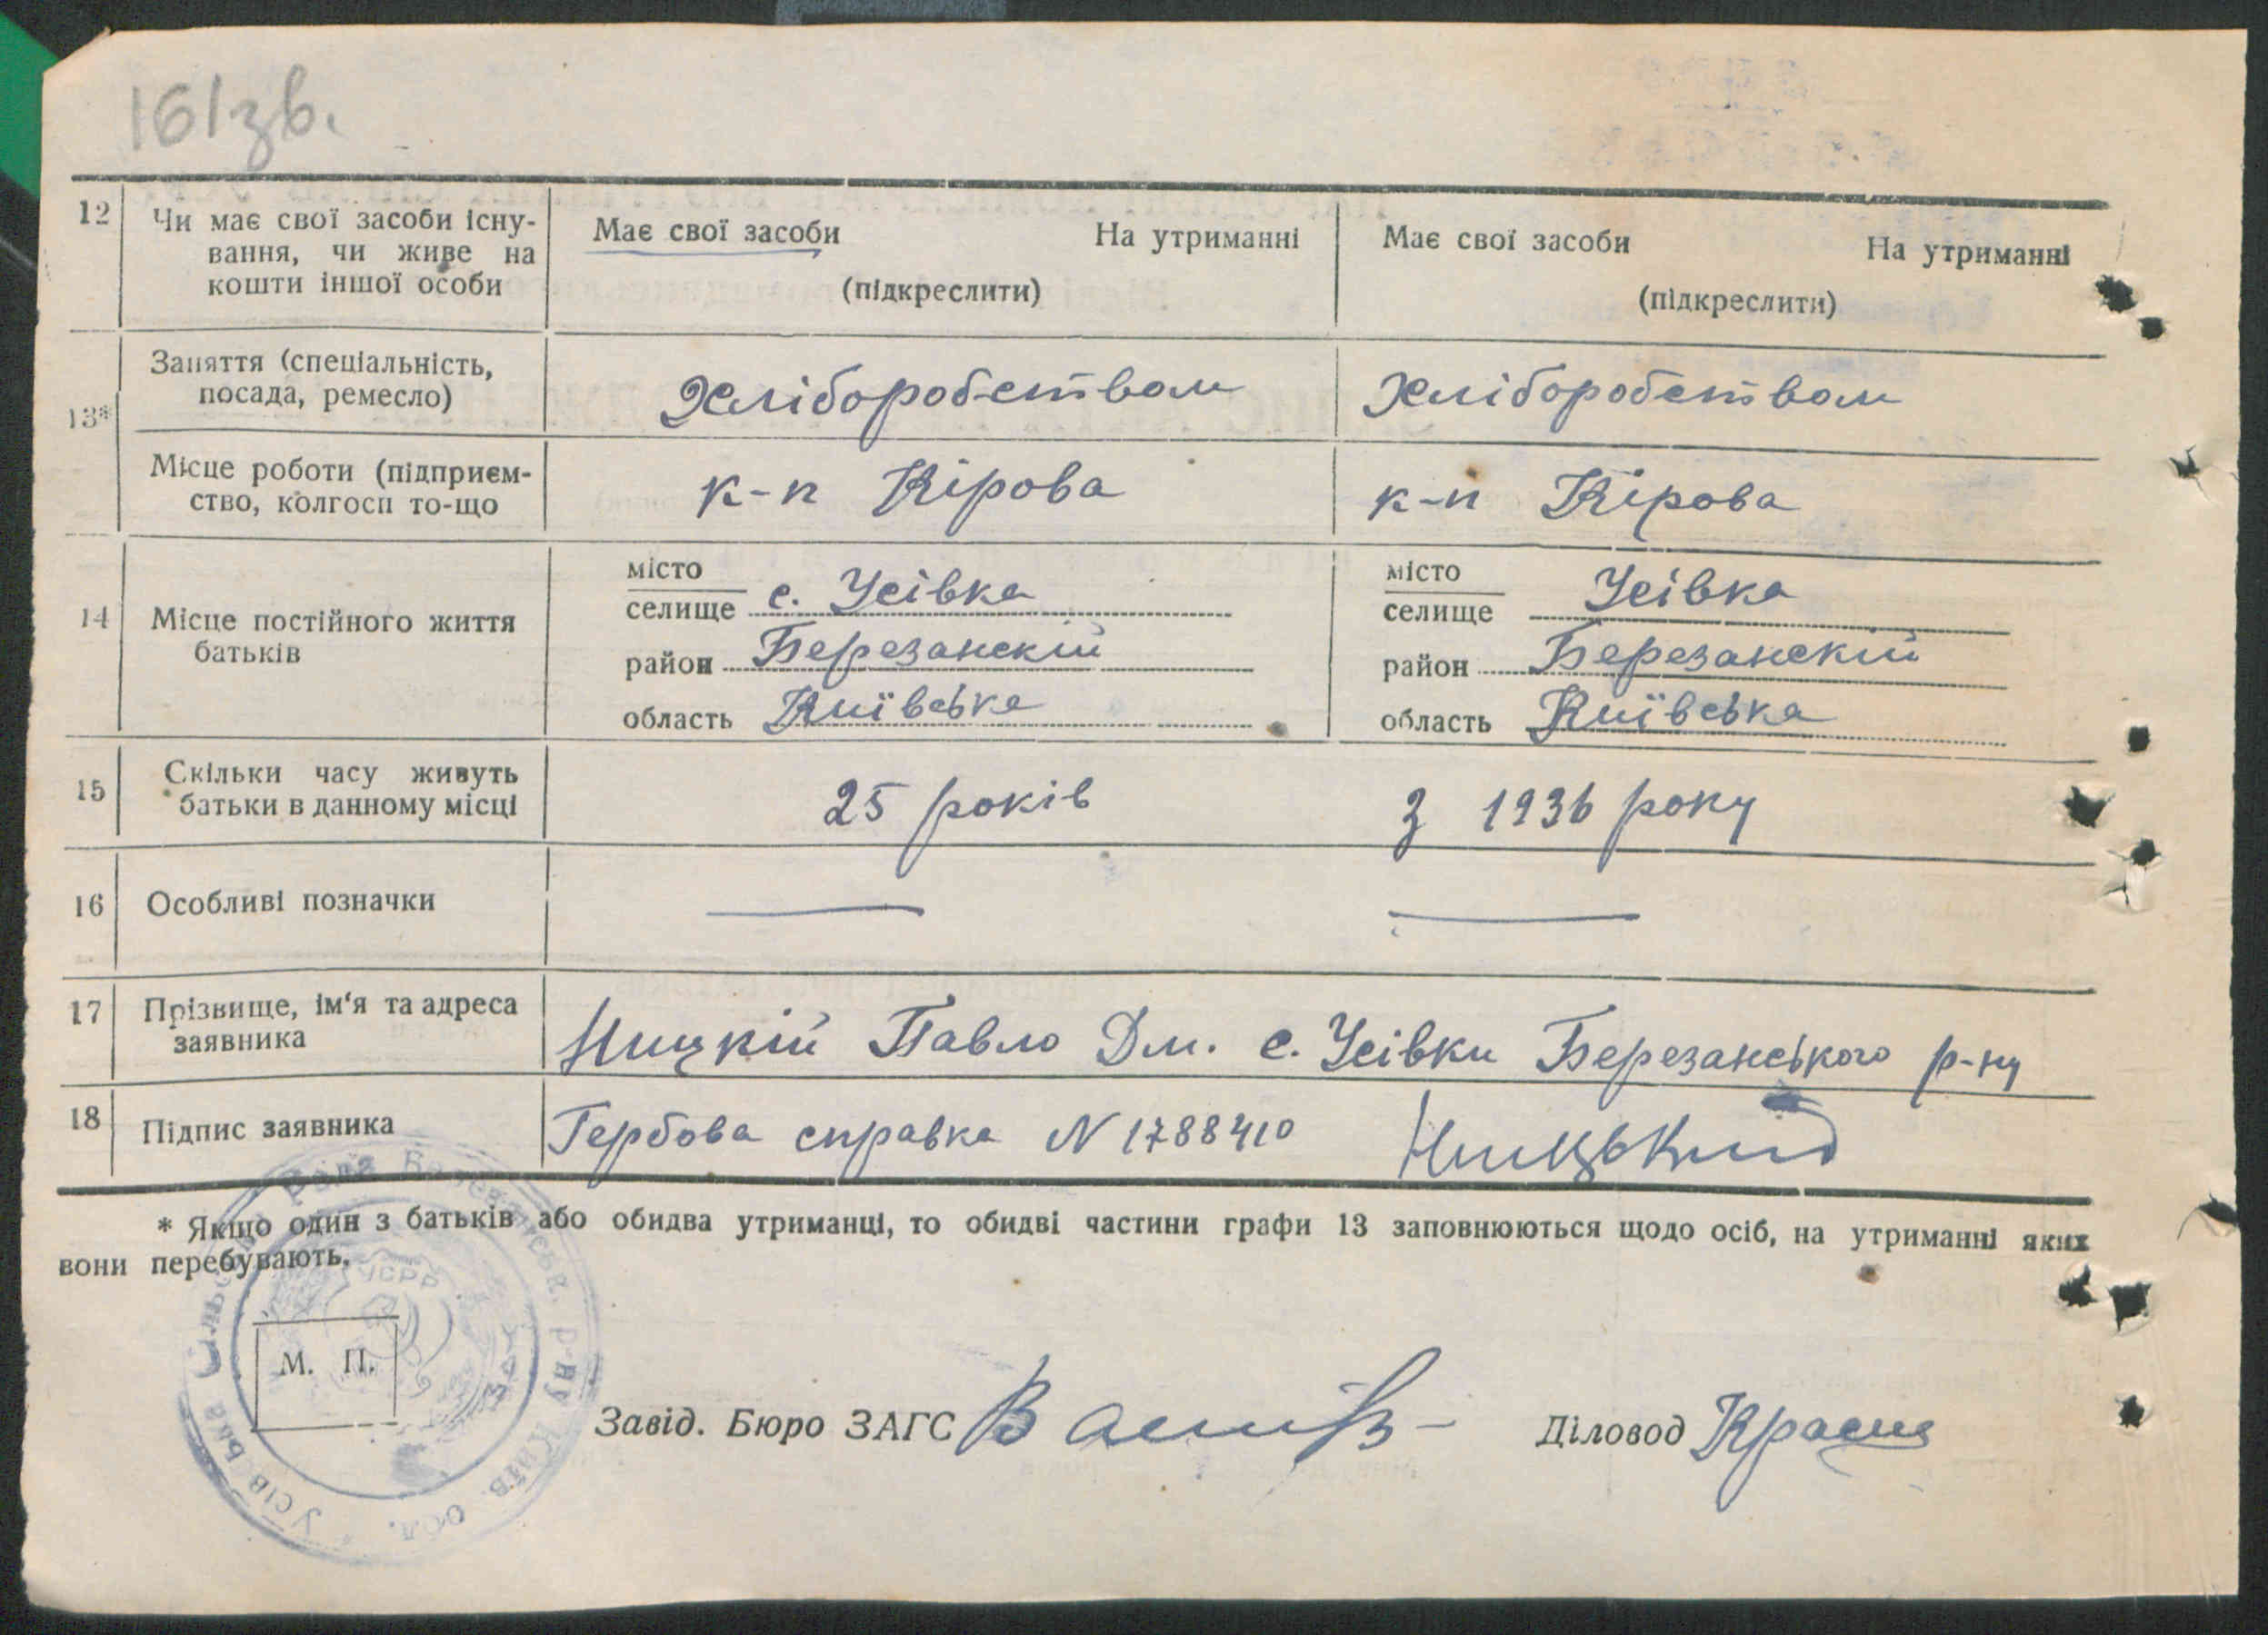 161зв.
12 Чи має свої засоби існу- Має свої засоби На утриманні Має свої засоби На утриманні
вання, чи живе на
кошти іншої особи (підкреслити) (підкреслити)
13* Заняття (спеціальність,
посада, ремесло) Хліборобством Хліборобством
Місце роботи (підприєм-
ство, колгосп то-що к-п Кірова к-п Кірова
14 Місце постійного життя
батьків
місто
селище с. Усівка
район Березанскій
область Київська
місто
селище Усівка
район Березанскій
область Київська
15 Скільки часу живуть
батьки в данному місці 25 років З 1936 року
16 Особливі позначки — —
17 Прізвище, ім'я та адреса
заявника Ницкій Павло Дм. с. Усівки Березанського р-ну
18 Підпис заявника Гербова справка N 1788410 Ницький
* Якщо один з батьків або обидва утриманці, то обидві частини графи 13 заповнюються щодо осіб, на утриманні яких
вони перебувають.
УСРР
М. П.
Завід. Бюро ЗАГС Діловод